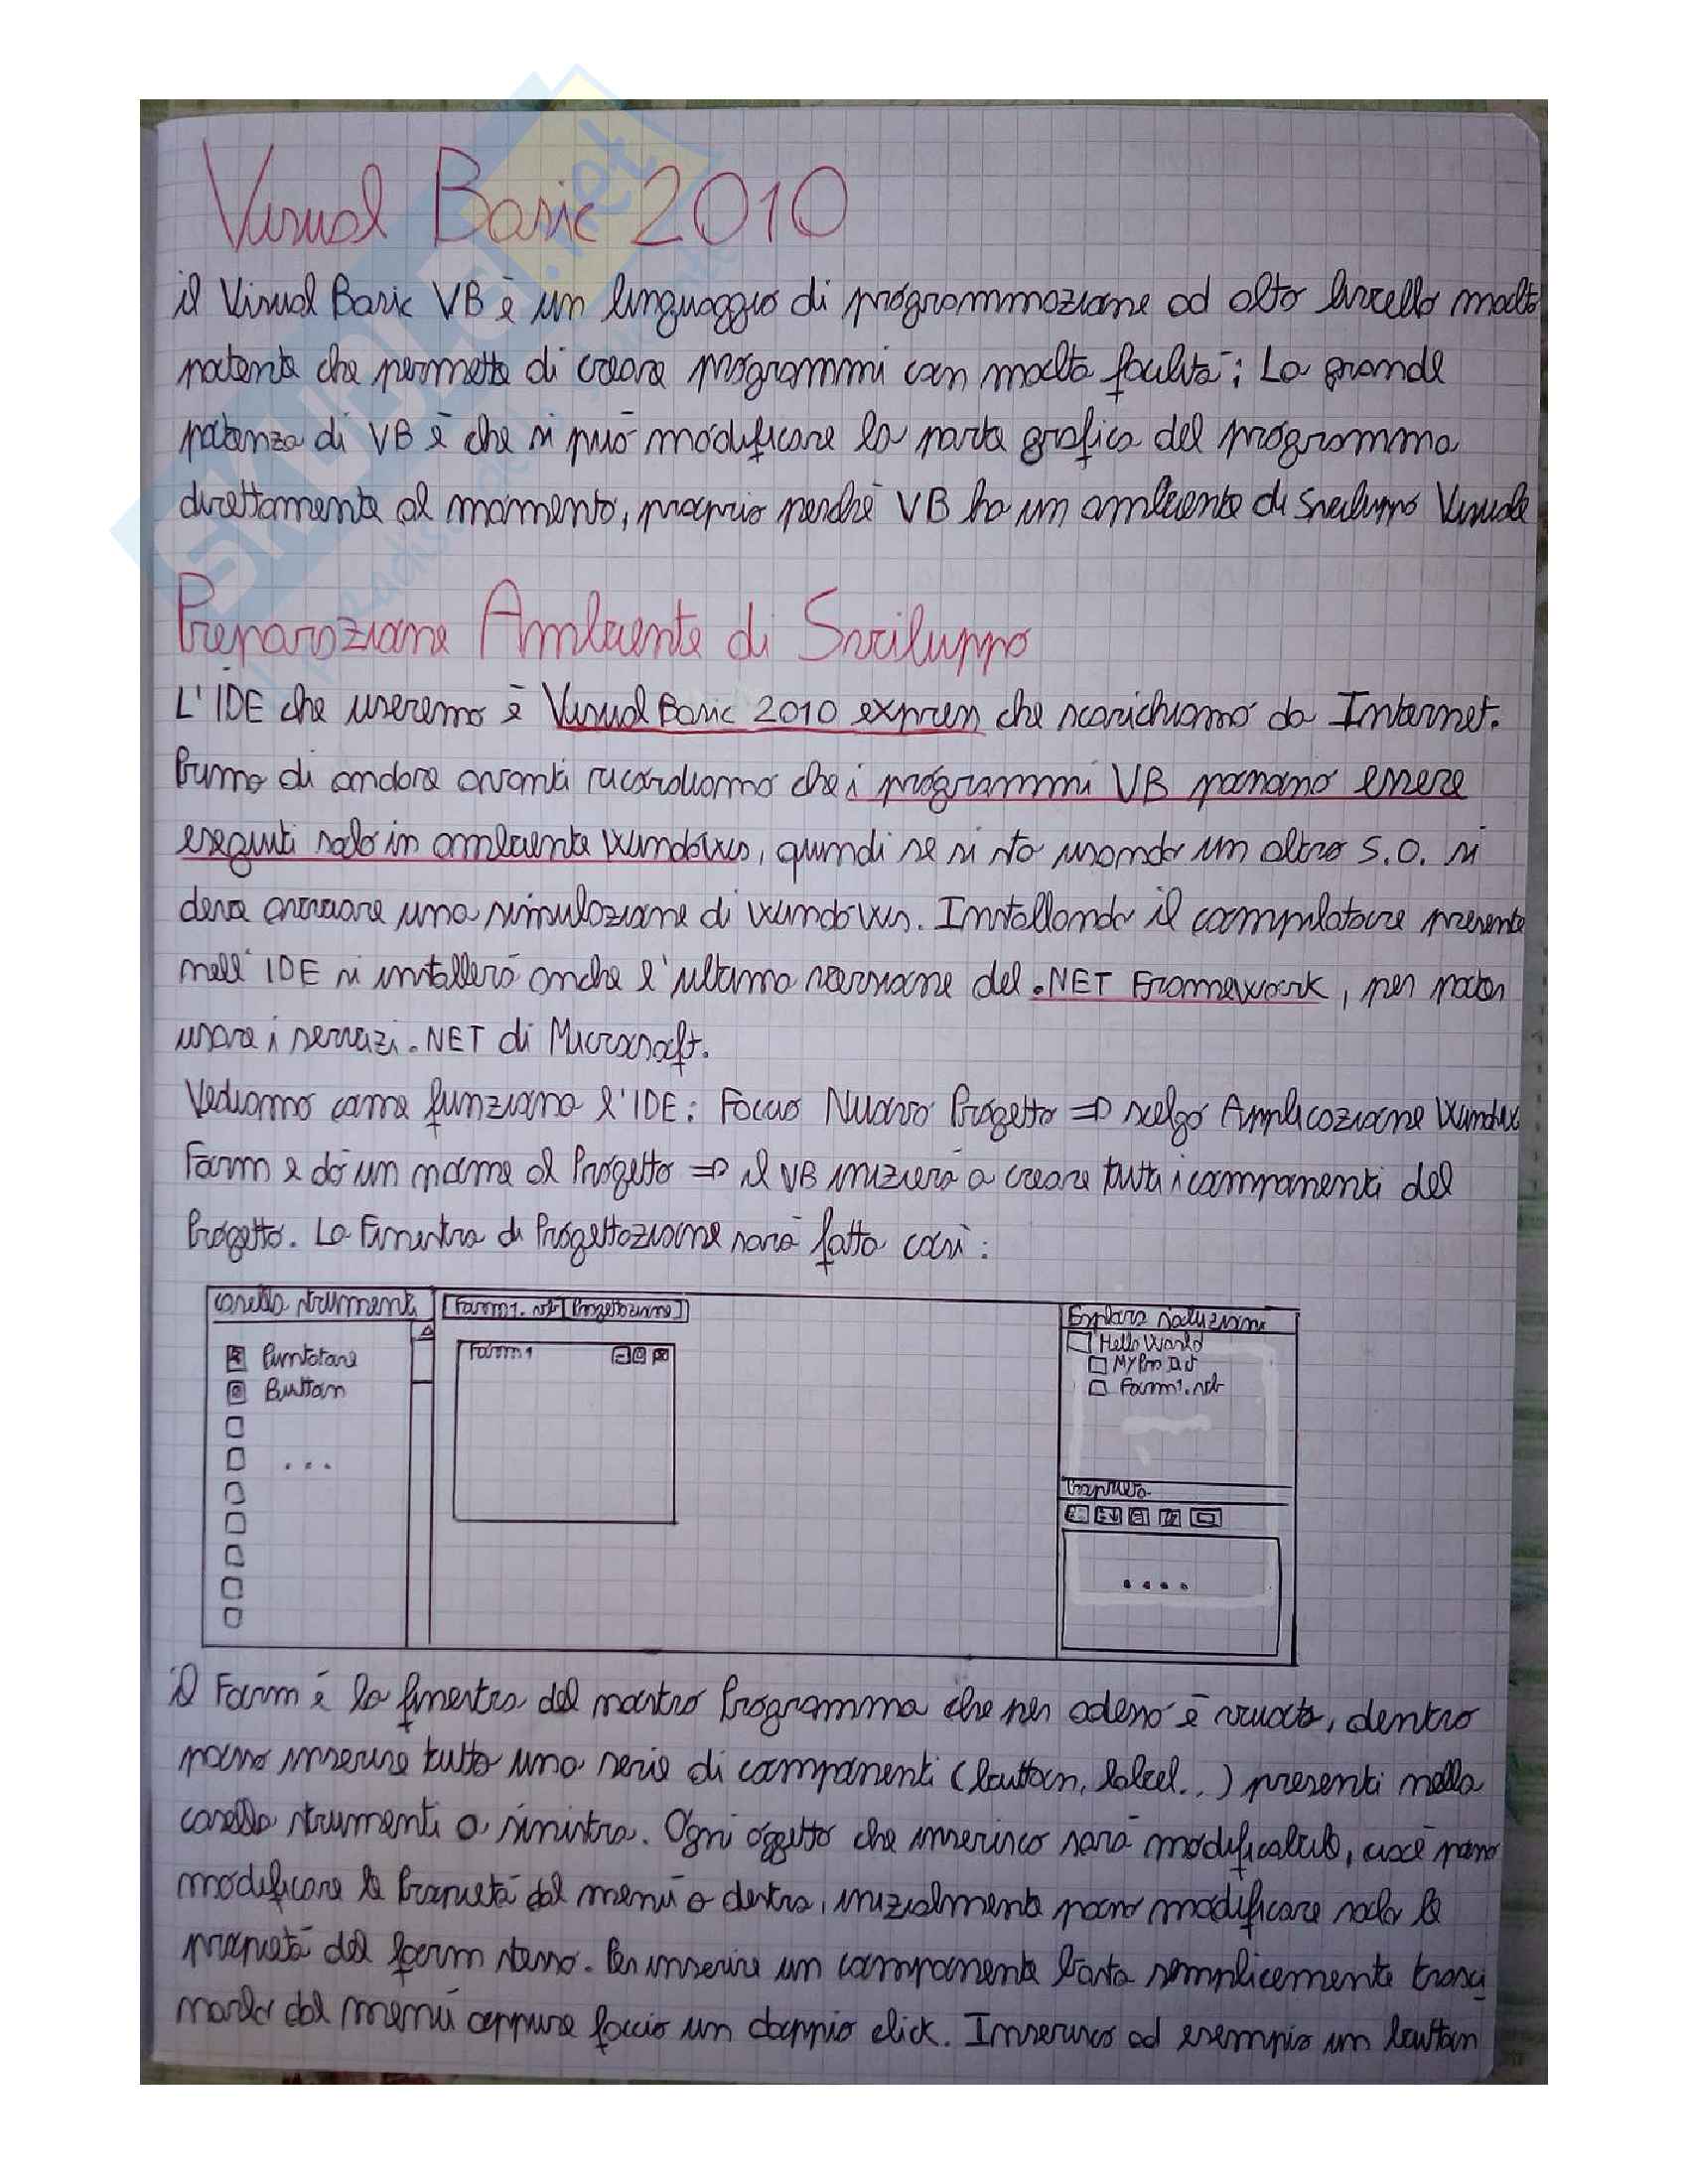 Visual Basic 2010
il Visual Basic VB è un linguaggio di programmazione ad alto livello molto
potente che permette di creare programmi con molta facilità; La grande
potenza di VB è che si può modificare la parte grafica del programma
direttamente al momento, proprio perché VB ha un ambiente di Sviluppo Visuale
Preparazione Ambiente di Sviluppo
L'IDE che useremo è Visual Basic 2010 express che scarichiamo da Internet.
Prima di andare avanti ricordiamo che i programmi VB possono essere
eseguiti solo in ambiente Windows, quindi se si sta usando un altro S.O. si
deve avviare una simulazione di windows. Installando il compilatore presente
nell'IDE si installerà anche l'ultima versione del .NET Framework, per poter
usare i servizi .NET di Microsoft.
Vediamo come funziona l'IDE: Faccio Nuovo Progetto ⇒ scelgo Applicazione Windows
Form e dò un nome al Progetto ⇒ il VB inizierà a creare tutti i componenti del
Progetto. La Finestra di Progettazione sarà fatta così:
casella strumenti
Form1.vb [Progettazione]
Esplora Soluzioni
Puntatore
Button
...
Form1
Hello World
My Project
Form1.vb
Proprietà
....
il Form è la finestra del nostro Programma che per adesso è vuota, dentro
posso inserire tutta una serie di componenti (button, label..) presenti nella
casella strumenti a sinistra. Ogni oggetto che inserisco sarà modificabile, cioè posso
modificare le Proprietà dal menù a destra, inizialmente posso modificare solo le
proprietà del form stesso. Per inserire un componente basta semplicemente trasci
narlo dal menù oppure faccio un doppio click. Inserisco ad esempio un button
SKUOLA.net